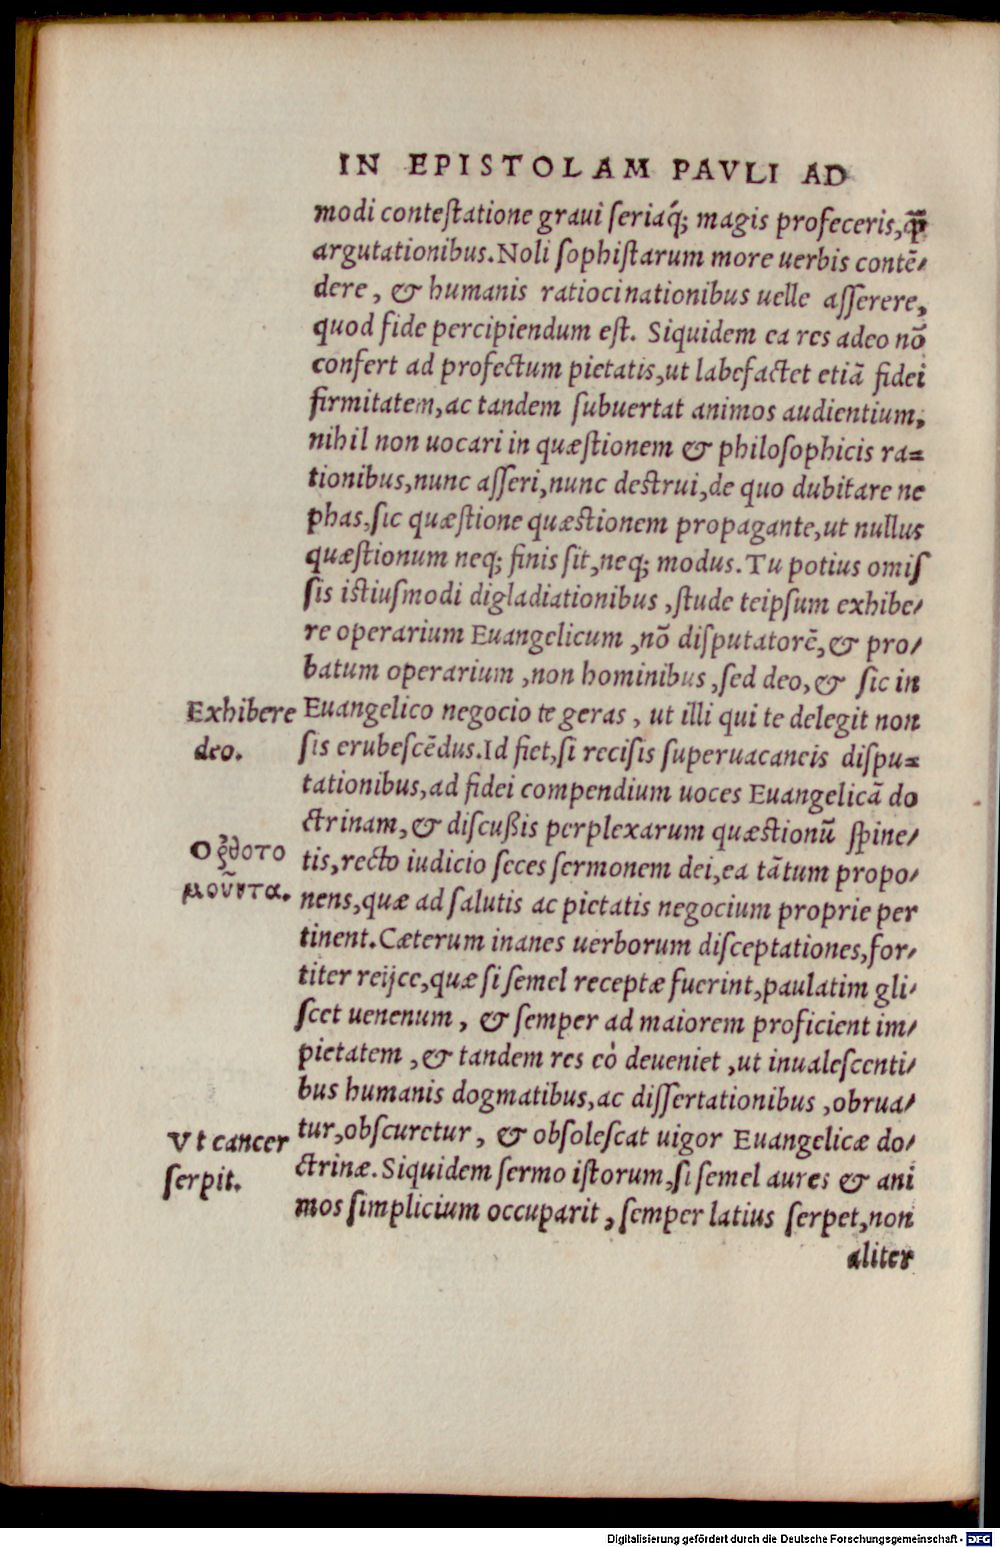 IN EPISTOLAM PAVLI AD
modi conteſtatione graui ſeriaq́; magis profeceris,q̃ꝫ
argutationibus. Noli ſophiſtarum more uerbis contē/
dere, & humanis ratiocinationibus uelle aſſerere,
quod fide percipiendum eſt. Siquidem ea res adeo nō
confert ad profectum pietatis, ut labefactet etiā fidei
firmitatem, ac tandem ſubuertat animos audientium,
nihil non uocari in quæſtionem & philoſophicis ra=
tionibus, nunc aſſeri, nunc deſtrui, de quo dubitare ne
phas, ſic quæſtione quæstionem propagante, ut nullus
quæſtionum neq; finis ſit, neq; modus. Tu potius omiſ
ſis istiuſmodi digladiationibus, ſtude teipſum exhibe/
re operarium Euangelicum, nō diſputatorē, & pro/
batum operarium, non hominibus, ſed deo, & ſic in
Exhibere
deo.
Euangelico negocio te geras, ut illi qui te delegit non
ſis erubeſcēdus. Id fiet, ſi reciſis ſuperuacaneis diſpu=
tationibus, ad fidei compendium uoces Euangelicā do
ctrinam, & diſcußis perplexarum quæstionū ſpine/
Ορθοτο
μοῦντα.
tis, recto iudicio ſeces ſermonem dei, ea tātum propo/
nens, quæ ad ſalutis ac pietatis negocium proprie per
tinent. Cæterum inanes uerborum diſceptationes, for/
titer reijce, quæ ſi ſemel receptæ fuerint, paulatim gli/
ſcet uenenum, & ſemper ad maiorem proficient im/
pietatem, & tandem res eò deueniet, ut inualeſcenti/
bus humanis dogmatibus, ac diſſertationibus, obrua/
Vt cancer
ſerpit.
tur, obſcuretur, & obſoleſcat uigor Euangelicæ do/
ctrinæ. Siquidem ſermo iſtorum, ſi ſemel aures & ani
mos ſimplicium occuparit, ſemper latius ſerpet, non
aliter
Digitalisierung gefördert durch die Deutsche Forschungsgemeinschaft - DFG